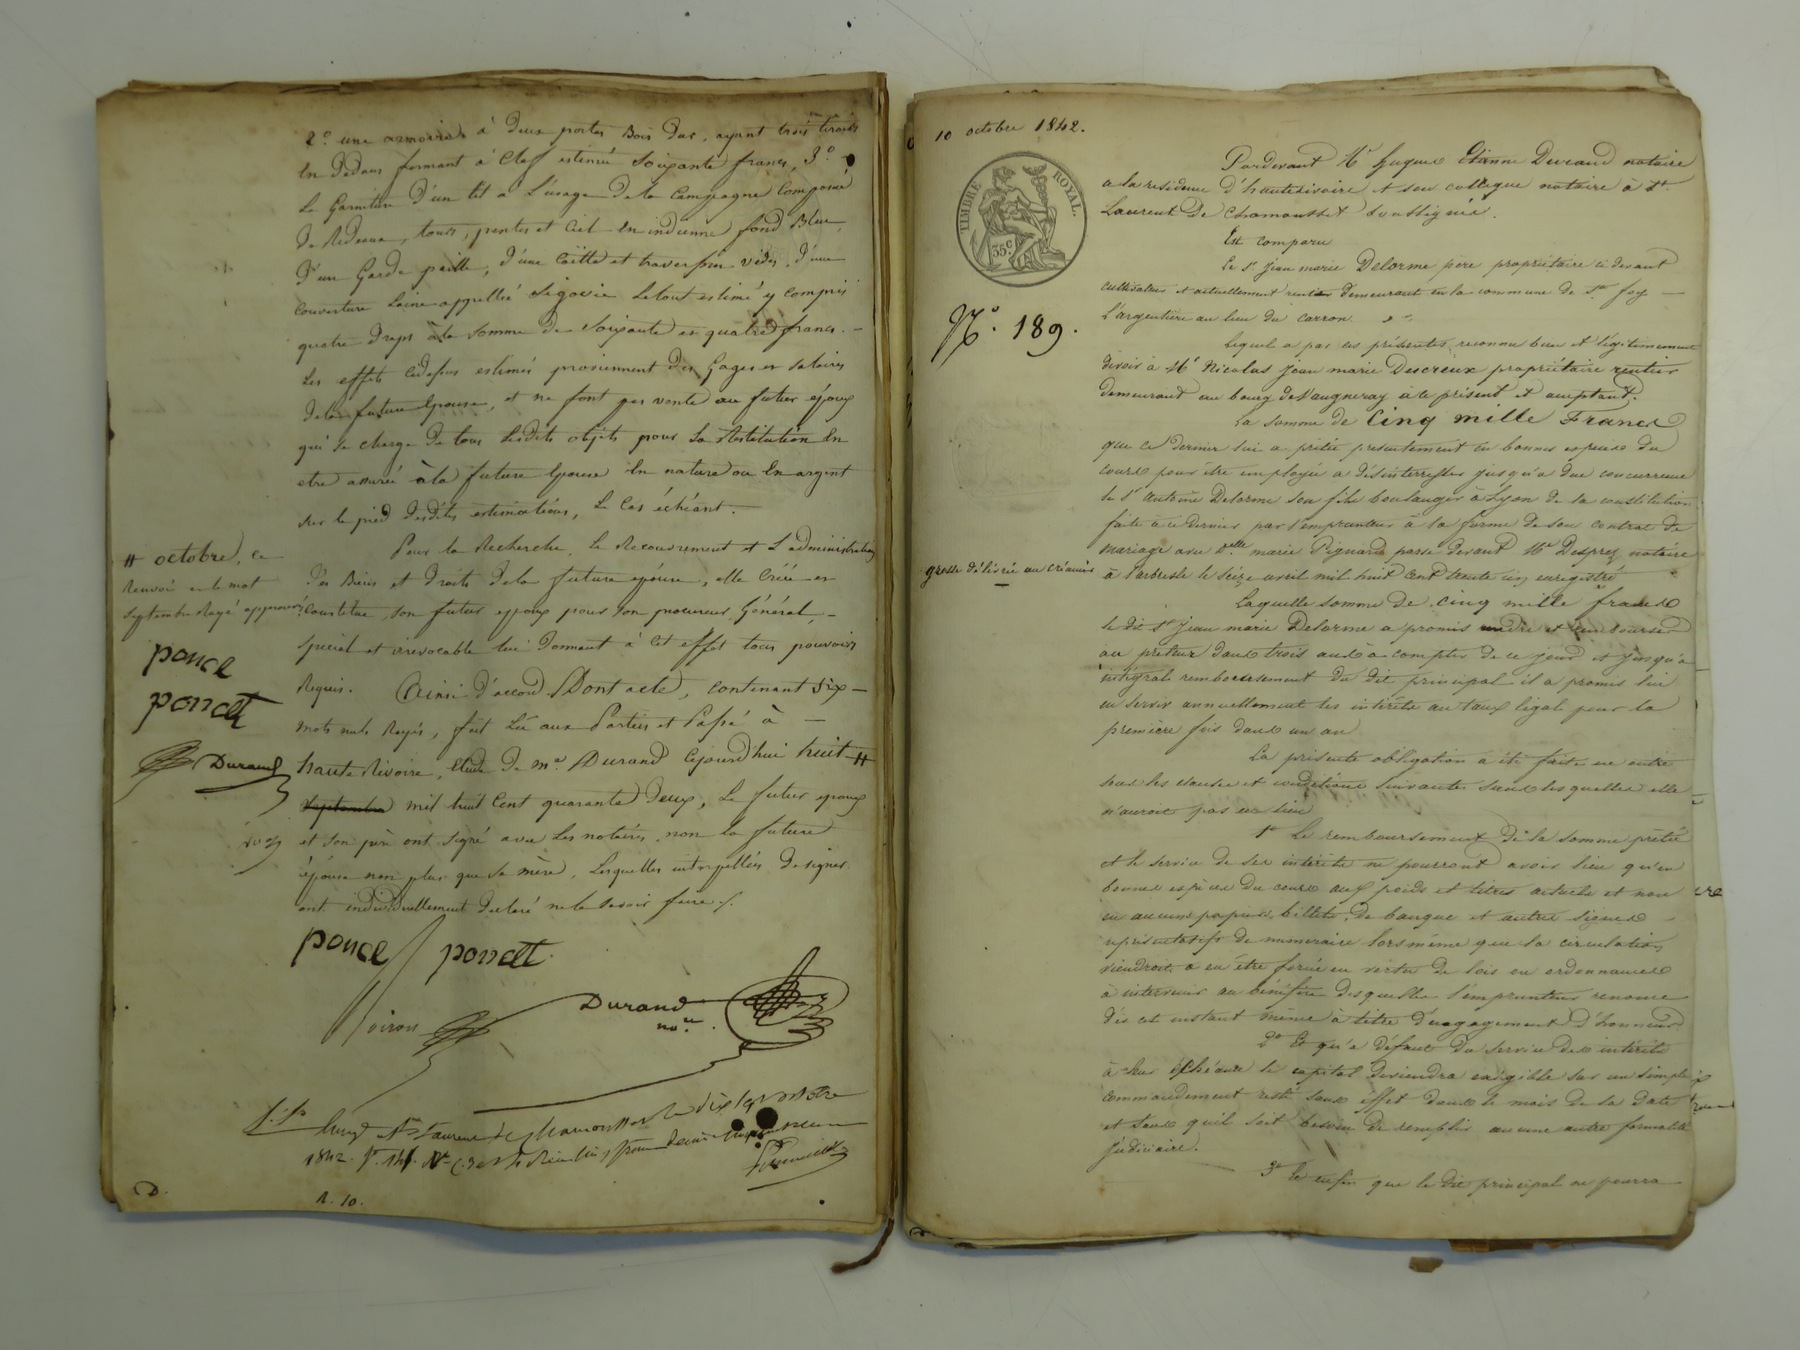 2.° une armoire à deux portes Bois dur, ayant trois tiroirs
En dedans fermant à Clef estimée Soixante francs, 3.°
La Garniture d'un lit à L'usage De la Campagne Composé
De Rideaux, tours, pentes et Ciel En indienne fond Bleu,
D'un Garde paille, d'une Coëtte et traversin vides, d'une
Couverture Laine appellée Ségovie Le tout estimé y Compris
quatre Draps à la Somme De Soixante et quatre francs. —
Les effets Cidessus estimés proviennent des Gages et Salaires
De la future Epouse, et ne font pas vente au futur époux
qui Se Charge De tous Lesdits objets pour La Restitution En
etre assurée à la future Epouse En nature ou En argent
sur le pied desdites estimations, Le Cas échéant.
Pour la Recherche, Le Recouvrement et L'administration
Des Biens et droits De la future épouse, elle Créé et
Constitue, Son futur epoux pour Son procureur Général, —
spécial et irrévocable lui Donnant à Cet effet tous pouvoirs
Requis. Ainsi d'accord Dont acte, contenant Six —
mots nuls Rayés, fait Lu aux Parties et Passé à —
haute Rivoire, Etude De me. Durand Cejourd'hui huit #
Septembre mil huit Cent quarante Deux, Le futur epoux
et Son père ont Signé avec Les notaires, non la future
épouse non plus que Sa mère, Lesquelles interpellées De signer
ont individuellement declaré ne le Savoir faire /.
# octobre, ce
Renvoi et le mot
Septembre Rayé approuvés
ponce
poncet
Durand
ponce poncet
Voiron
Durand
nore.
St Laurent de Chamousset le dix Sept octobre
1842. fo. 141.
D.
N. 10.
10 octobre 1842.
TIMBRE ROYAL.
35c
N°. 189.
grosse délivrée au créancier
Pardevant Me hugues Etienne Durand notaire
a la residence d'hauterivoire et son collègue notaire à St.
Laurent De Chamousset Soussignés.
Est comparu
Le Sr. Jean marie Delorme père propriétaire ci devant
cultivateur et actuellement rentier Demeurant en la commune de Ste foy —
L'argentière au lieu du Carron.
Lequel a par ces présentes, reconnu bien et légitimement
devoir à Mr Nicolas Jean marie Ducreux propriétaire rentier
demeurant au bourg de Vaugneray à ce présent et acceptant.
La somme de Cinq mille Francs
que ce Dernier lui a prêtée presentement en bonnes especes du
cours pour être employée a désintéresser jusqu'a due concurrence
le Sr. Antoine Delorme son fils boulanger à Lyon de la constitution
faite à ce dernier par l'emprunteur à la forme de son contrat de
mariage avec Delle marie Pignard passé devant Me Desprez notaire
à l'arbresle le seize avril mil huit cent trente six enregistré
Laquelle somme de cinq mille francs
le dit Sr. Jean marie Delorme a promis rendre et rembourser
au prêteur dans trois ans à compter de ce jour et jusqu'à
intégral remboursement du dit principal il a promis lui
en servir annuellement les intérêts au taux légal pour la
première fois dans un an
La présente obligation a été faite en outre
sous les clauses et conditions suivantes sans lesquelles elle
n'auroit pas eu lieu
1°. Le remboursement de la somme prêtée
et le service de ses intérêts ne pourront avoir lieu qu'en
bonnes espèces du cours aux poids et titres actuels et non
en aucuns papiers, billets, de banque et autres signes
représentatifs de numéraire lors même que la circulation
viendroit à en être forcée en vertu de lois ou ordonnances
à intervenir au bénéfice desquelles l'emprunteur renonce
dès cet instant même à titre d'engagement d'honneur
2° Et qu'à défaut du service des intérêts
à leur échéance le capital deviendra exigible sur un simple
commandement resté sans effet dans le mois de sa date
et sans qu'il soit besoin de remplir aucune autre formalité
Judiciaire.
3° Et enfin que le dit principal ne pourra